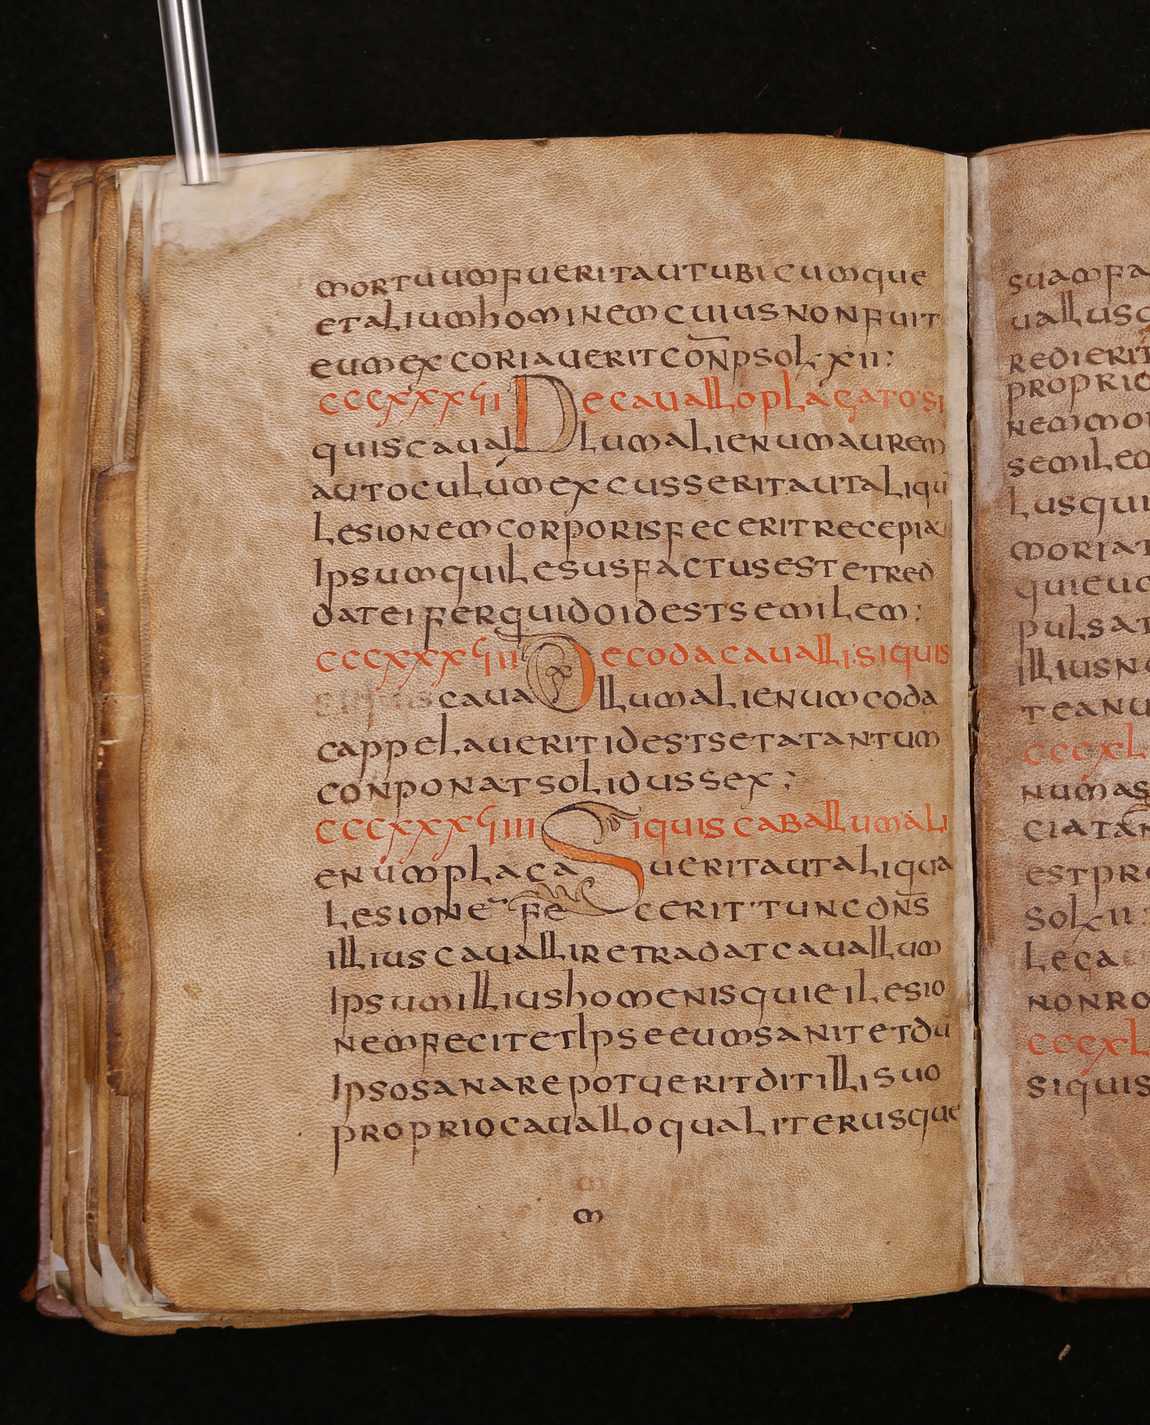 mortuum fuerit aut ubicumque
et alium hominem cuius non fuit
eum excoriauerit con̄p sol xii:
cccxxxuii De cauallo plagato· si
quis caual lum alienum aurem
aut oculum excusserit aut aliqu
lesionem corporis fecerit recepiat
ipsum qui lesus factus est et red
dat ei ferquido id est semilem:
cccxxxuiii De coda caualli· si quis
caua llum alienum coda
cappelauerit id est setatantum
conponat solidus sex:
cccxxxuiiii Si quis caballum ali
enum plaga uerit aut aliqua
lesione fe cerit· tunc don̄s
illius caualli retradat cauallum
ipsum illius homenis qui ei lesio
nem fecit et ipse eum sanit et dū
ipso sanare potuerit dit illi suo
proprio cauallo qualiter usque
m
suam fa
uallus
redierit
proprio
nem mo
semilem
lus qui
moriat
qui euc
pulsat
illius n
teanu
cccxl
num as
ciatā
est pro
sol xii:
lega
non ro
cccxl
si quis